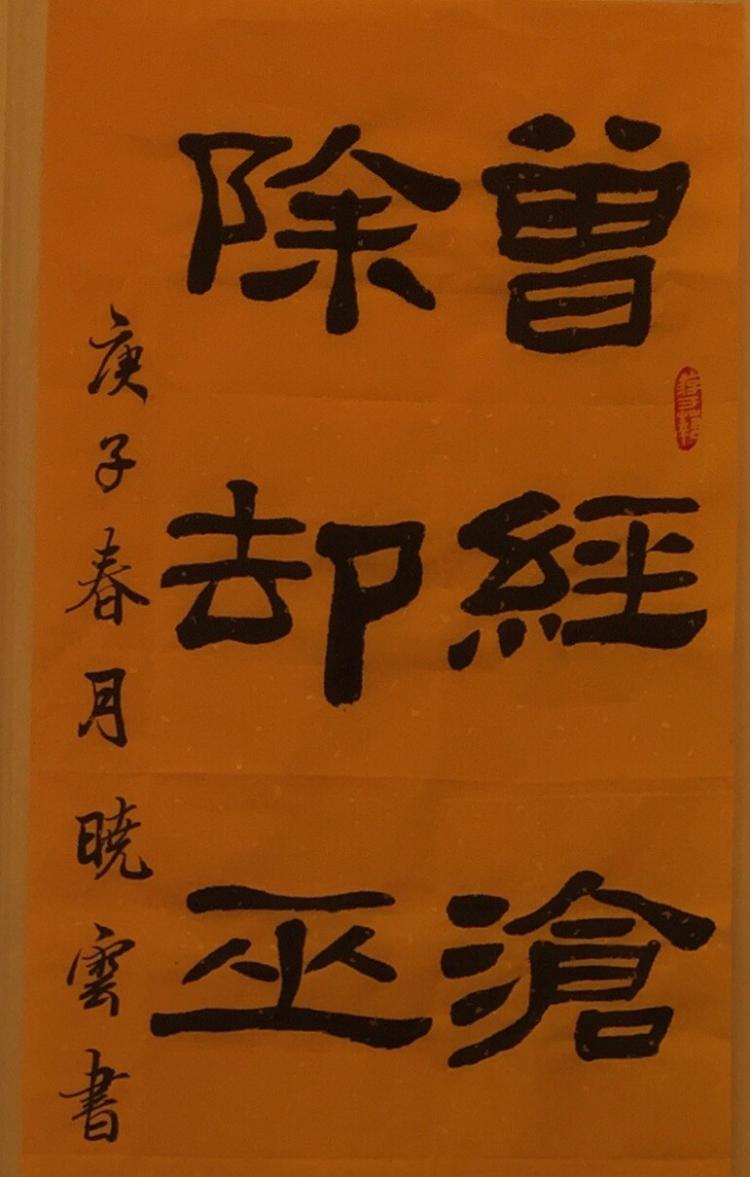 曾經滄
除却巫
庚子春月曉雲書